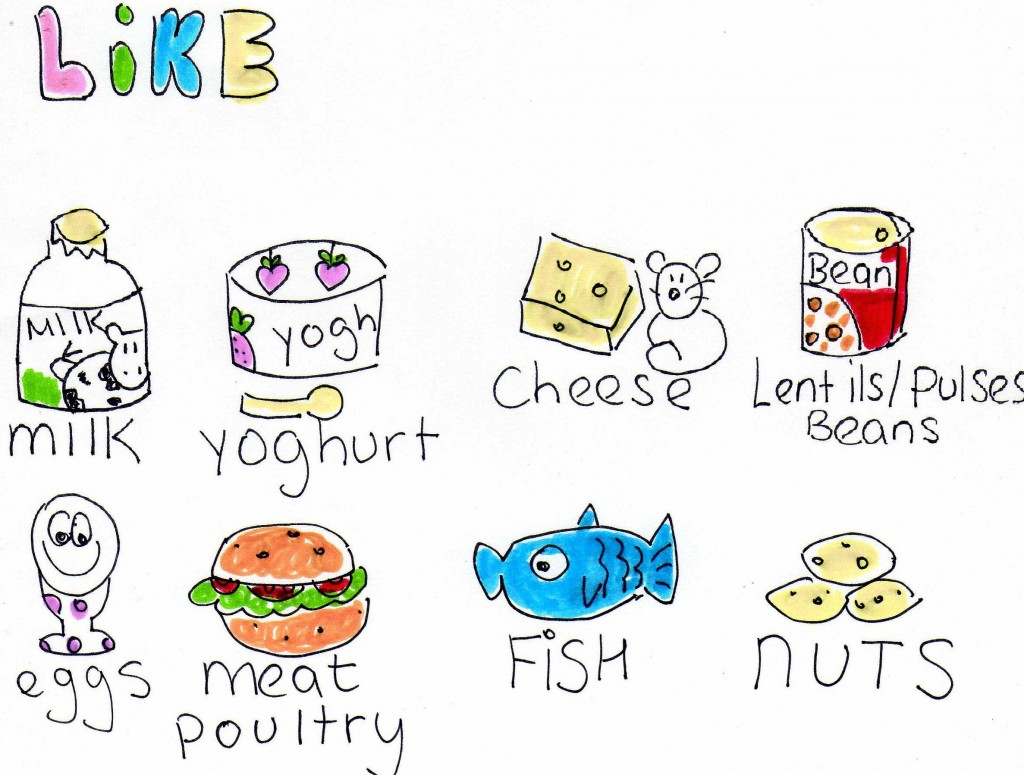 LiKE
MILK
yogh
Bean
milk
yoghurt
Cheese
Lentils/Pulses
Beans
eggs
meat
poultry
FiSH
nUTS